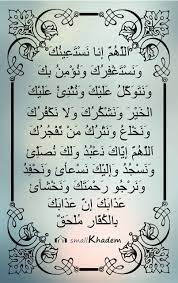 "اَللَّهُمَّ إِنَا نَسْتَعِينُكَ
وَنَسْتَغْفِرُكَ وَنُؤْمِنُ بِكَ
وَنَتَوَكَّلُ عَلَيْكَ وَنُثْنِئْ عَلَيْكَ
الخَيْرَ وَنَشْكُرُكَ وَلَا نَكْفُرُكَ
وَنَخْلَعُ وَنَتْرُكُ مَنْ تَفْجُرُكَ
اَللَّهُمَّ إِيَّاكَ نَعْبُدُ وَلَكَ نُصَلِّئ
وَنَسْجُدُ وَإِلَيْكَ نَسْعَأئ وَنَحْفِدُ
وَنَرْجُو رَحْمَتَكَ وَنَخْشَأئ
عَذَابَكَ إِنَّ عَذَابَكَ
بِالكُفَّارِ مُلْحَقٌ"
smallKhadem